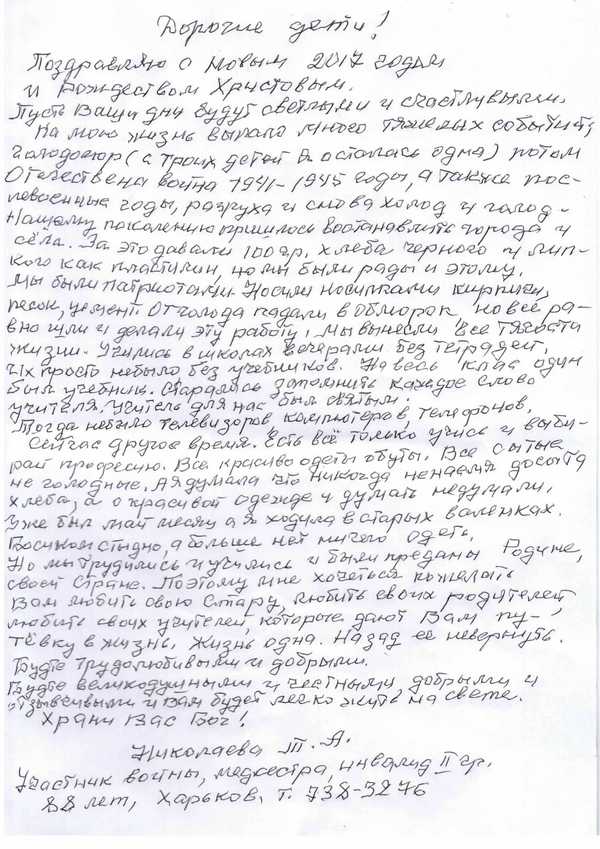 Дорогие дети!
Поздравляю с Новым 2017 годом
и Рождеством Христовым.
Пусть Ваши дни будут светлыми и счастливыми.
На мою жизнь выпало много тяжелых событий;
голодомор (с троих детей я осталась одна) потом
Отечествена война 1941-1945 годы, а также пос-
левоенные годы, разруха и снова холод и голод.
Нашему поколению пришлось востанавлить города и
сёла. За это давали 100 гр. хлеба черного и лип-
кого как пластилин, но мы были рады и этому.
Мы были патриотами. Носили носилками кирпичи,
песок, цемент. От голода падали в обморок но всё ра-
вно шли и делали эту работу, мы вынесли все тягости
жизни. Учились в школах вечерами без тетрадей,
их просто небыло без учебников. На весь клас один
был учебник. Старались запомнить каждое слово
учителя. Учитель для нас был святым.
Тогда небыло телевизоров, компютеров, телефонов.
Сейчас другое время. Есть всё только учись и выби-
рай професию. Все красиво одеты обуты. Все сытые
не голодные. А я думала что никогда ненаемя досыта
хлеба, а о красивой одежде и думать недумали.
Уже был май месяц а я ходила в старых валенках.
Босиком стыдно, а больше нет ничего одеть.
Но мы трудились и учились и были преданы Родине,
своей стране. Поэтому мне хочеться пожелать
Вам любить свою страну, любить своих родителей
любить своих учителей, которые дают Вам пу-
тёвку в жизнь. Жизнь одна. Назад её невернуть.
Будте трудолюбивыми и добрыми.
Будте великодушными и честными добрыми и
отзывчивыми и Вам будет легко жить на свете.
Храни Вас Бог!
Николаева Т. А.
Участник войны, медсестра, инвалид II гр.
88 лет, Харьков, т. 738-3276